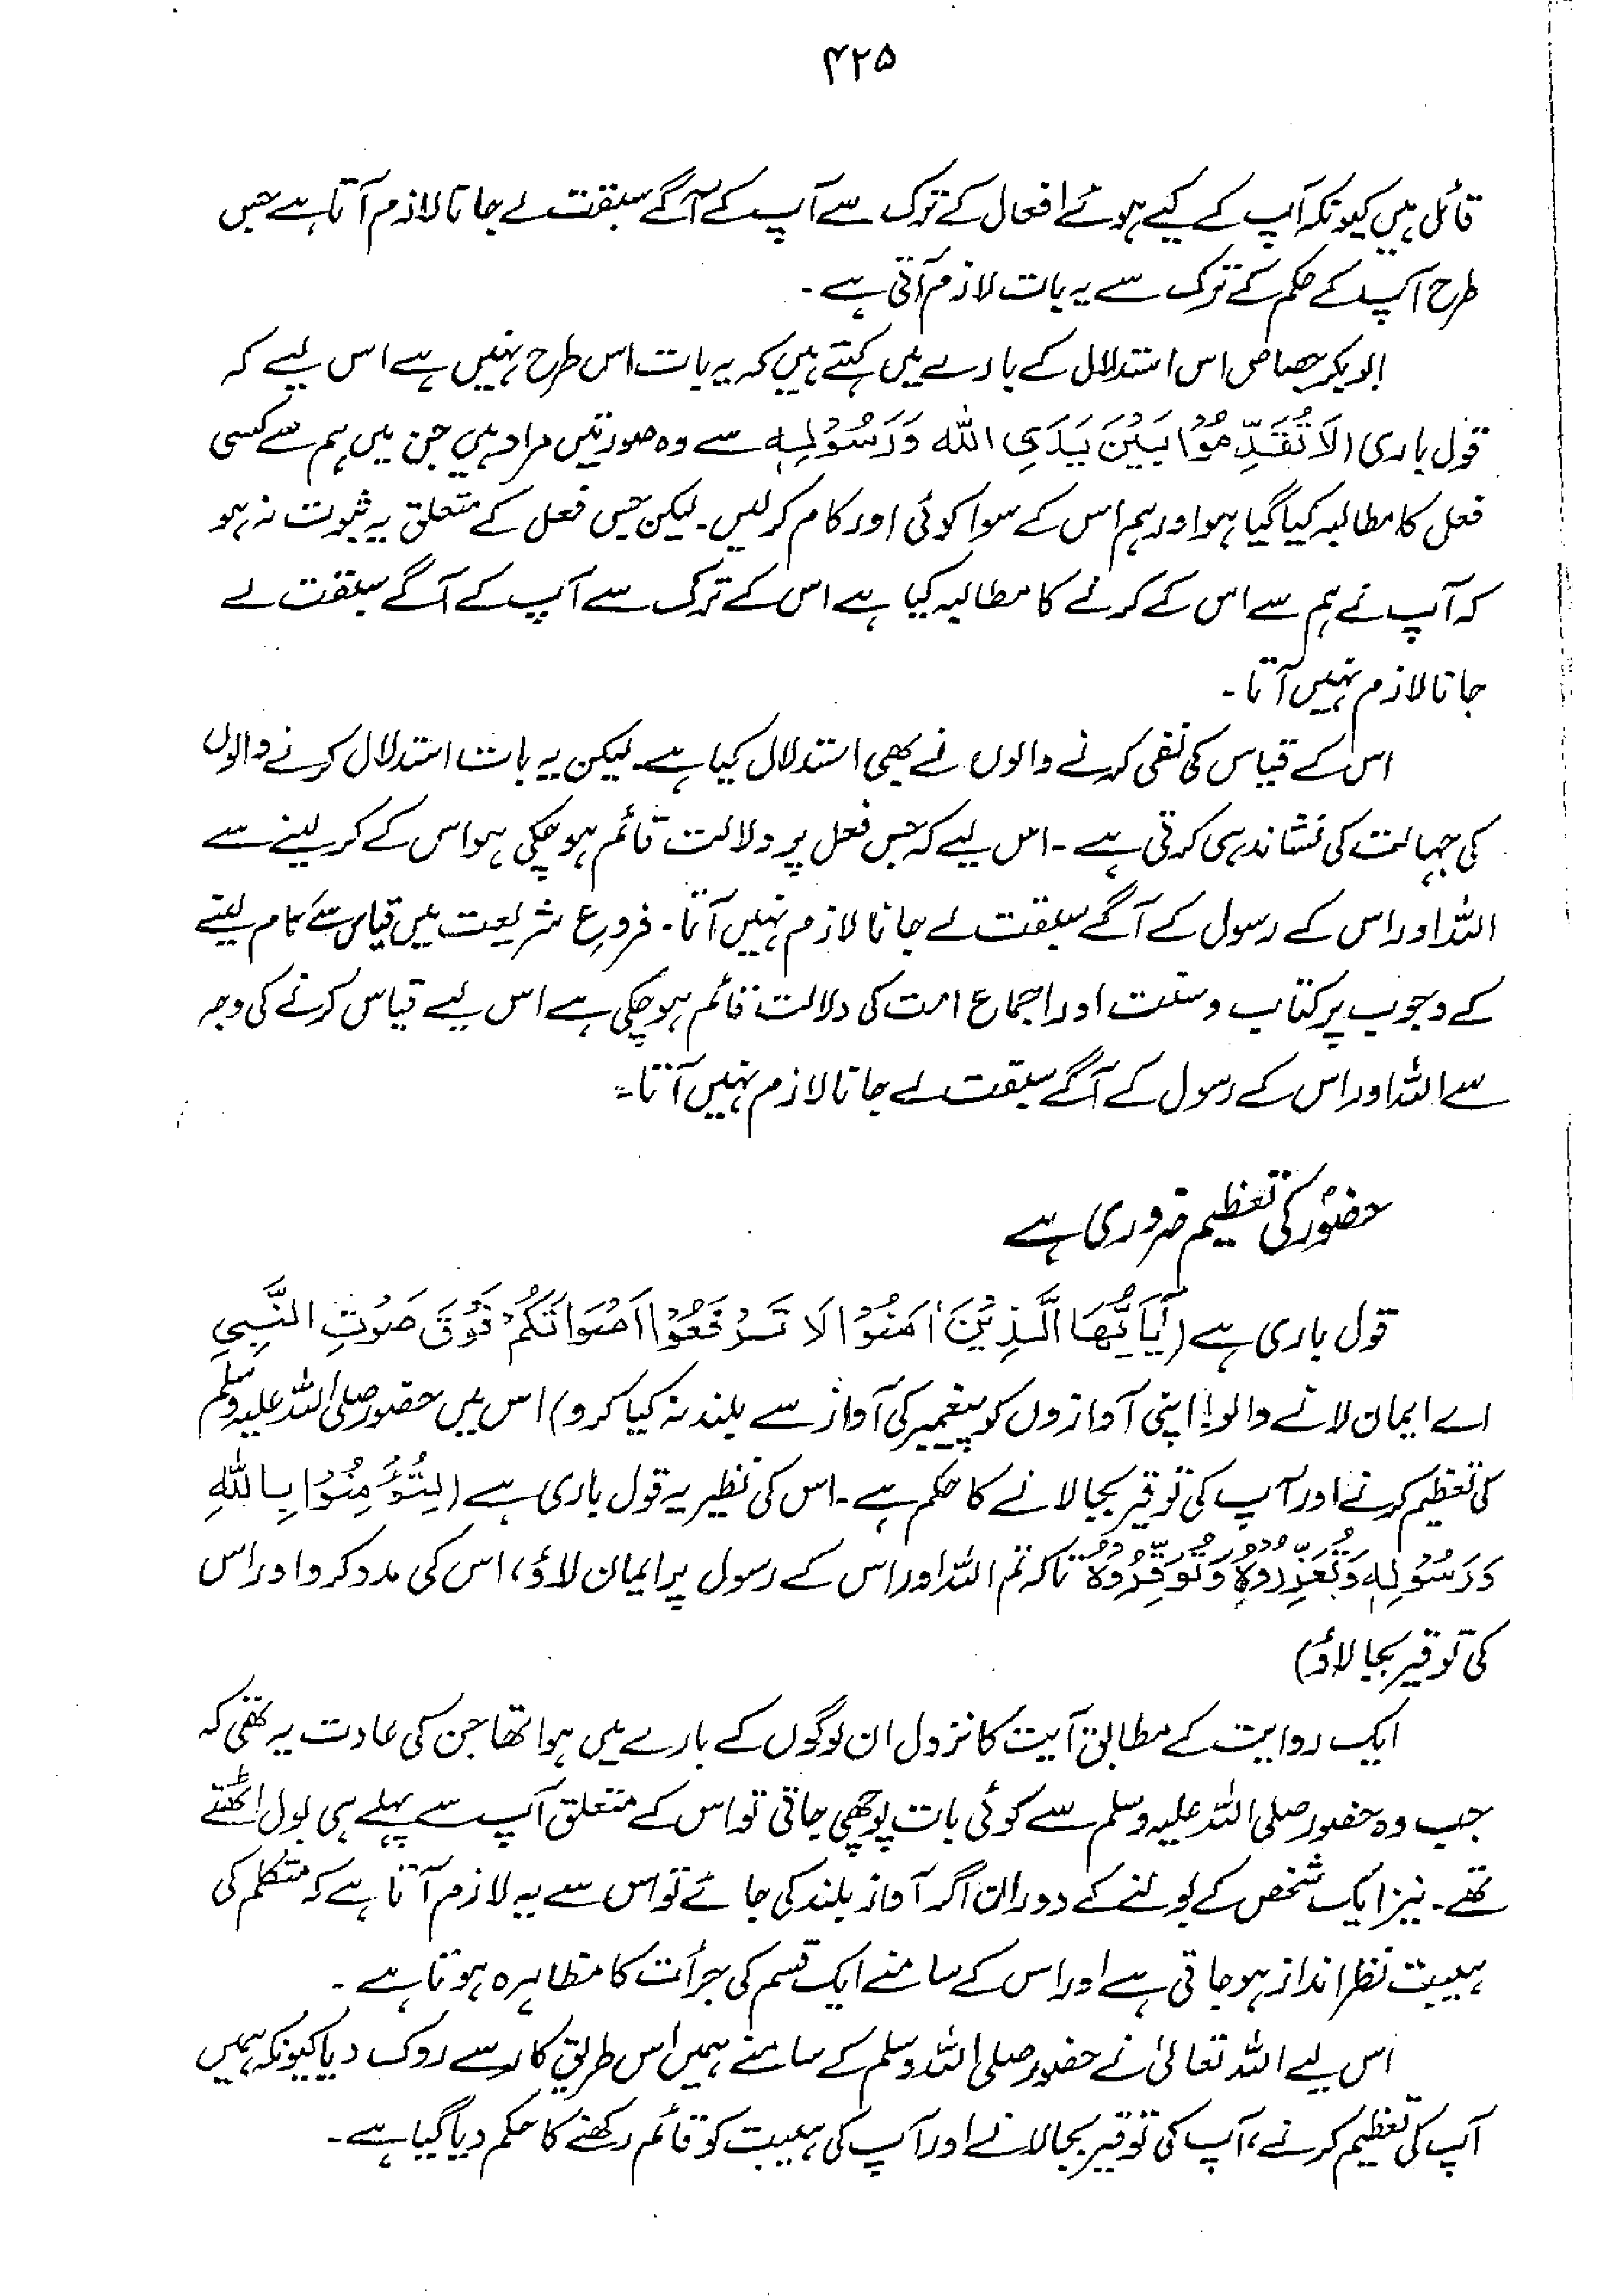 ۴۲۵
قائل ہیں کیونکہ آپ کے کیے ہوئے افعال کے ترک سے آپ کے آگے سبقت لے جانا لازم آتا ہے جس
طرح آپ کے حکم کے ترک سے یہ بات لازم آتی ہے۔
ابوبکر جصاص اس استدلال کے بارے میں کہتے ہیں کہ یہ بات اس طرح نہیں ہے اس لیے کہ
قول باری (لَا تُقَدِّمُوْا بَيْنَ يَدَيِ اللّٰه وَرَسُوْلِهٖ سے وہ صورتیں مراد ہیں جن میں ہم سے کسی
فعل کا مطالبہ کیا گیا ہو اور ہم اس کے سوا کوئی اور کام کر لیں۔ لیکن جس فعل کے متعلق یہ ثبوت نہ ہو
کہ آپ نے ہم سے اس کے کرنے کا مطالبہ کیا ہے اس کے ترک سے آپ کے آگے سبقت لے
جانا لازم نہیں آتا۔
اس کے قیاس کی نفی کرنے والوں نے بھی استدلال کیا ہے۔ لیکن یہ بات استدلال کرنے والوں
کی جہالت کی نشاندہی کرتی ہے۔ اس لیے کہ جس فعل پر دلالت قائم ہو چکی ہو اس کے کر لینے سے
اللہ اور اس کے رسول کے آگے سبقت لے جانا لازم نہیں آتا۔ فروع شریعت میں قیاس سے کام لینے
کے وجوب پر کتاب و سنت اور اجماع امت کی دلالت قائم ہو چکی ہے اس لیے قیاس کرنے کی وجہ
سے اللہ اور اس کے رسول کے آگے سبقت لے جانا لازم نہیں آتا۔
حضورؐ کی تعظیم ضروری ہے
قول باری ہے (يٰٓاَيُّهَا الَّذِيْنَ اٰمَنُوْا لَا تَرْفَعُوْا اَصْوَاتَكُمْ فَوْقَ صَوْتِ النَّبِيِ
اے ایمان لانے والو! اپنی آوازوں کو پیغمبر کی آواز سے بلند نہ کیا کرو) اس میں حضور صلی اللہ علیہ وسلم
کی تعظیم کرنے اور آپ کی توقیر بجا لانے کا حکم ہے۔ اس کی نظیر یہ قول باری ہے (لِتُؤْمِنُوْا بِاللّٰهِ
وَرَسُوْلِهٖ وَتُعَزِّرُوْهُ وَتُوَقِّرُوْهُ تاکہ تم اللہ اور اس کے رسول پر ایمان لاؤ، اس کی مدد کرو اور اس
کی توقیر بجا لاؤ)
ایک روایت کے مطابق آیت کا نزول ان لوگوں کے بارے میں ہوا تھا جن کی عادت یہ تھی کہ
جب وہ حضور صلی اللہ علیہ وسلم سے کوئی بات پوچھی جاتی تو اس کے متعلق آپ سے پہلے ہی بول اٹھتے
تھے۔ نیز ایک شخص کے بولنے کے دوران اگر آواز بلند کی جائے تو اس سے یہ لازم آتا ہے کہ متکلم کی
ہیبت نظر انداز ہو جاتی ہے اور اس کے سامنے ایک قسم کی جرأت کا مظاہرہ ہوتا ہے۔
اس لیے اللہ تعالیٰ نے حضور صلی اللہ وسلم کے سامنے ہمیں اس طریق کار سے روک دیا کیونکہ ہمیں
آپ کی تعظیم کرنے، آپ کی توقیر بجا لانے اور آپ کی ہیبت کو قائم رکھنے کا حکم دیا گیا ہے۔